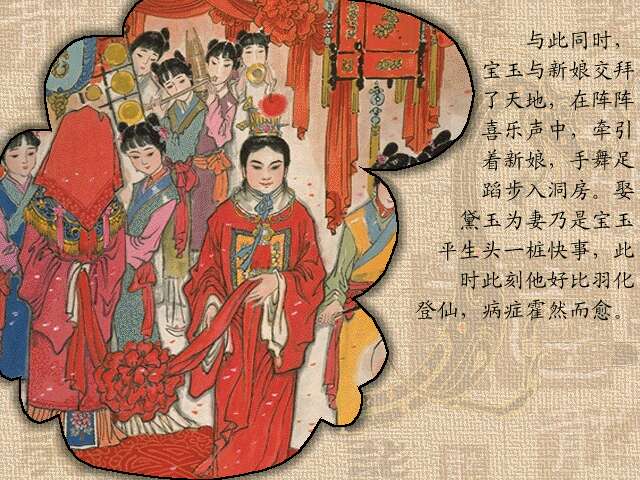 与此同时，
宝玉与新娘交拜
了天地，在阵阵
喜乐声中，牵引
着新娘，手舞足
蹈步入洞房。娶
黛玉为妻乃是宝玉
平生头一桩快事，此
时此刻他好比羽化
登仙，病症霍然而愈。